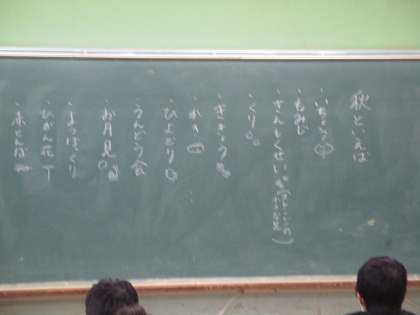 秋といえば
・いちょう
・もみじ
・きんもくせい
・くり
・ききょう
・かき
・ひよどり
・うんどう会
・お月見
・まつぼっくり
・ひがん花
・赤とんぼ